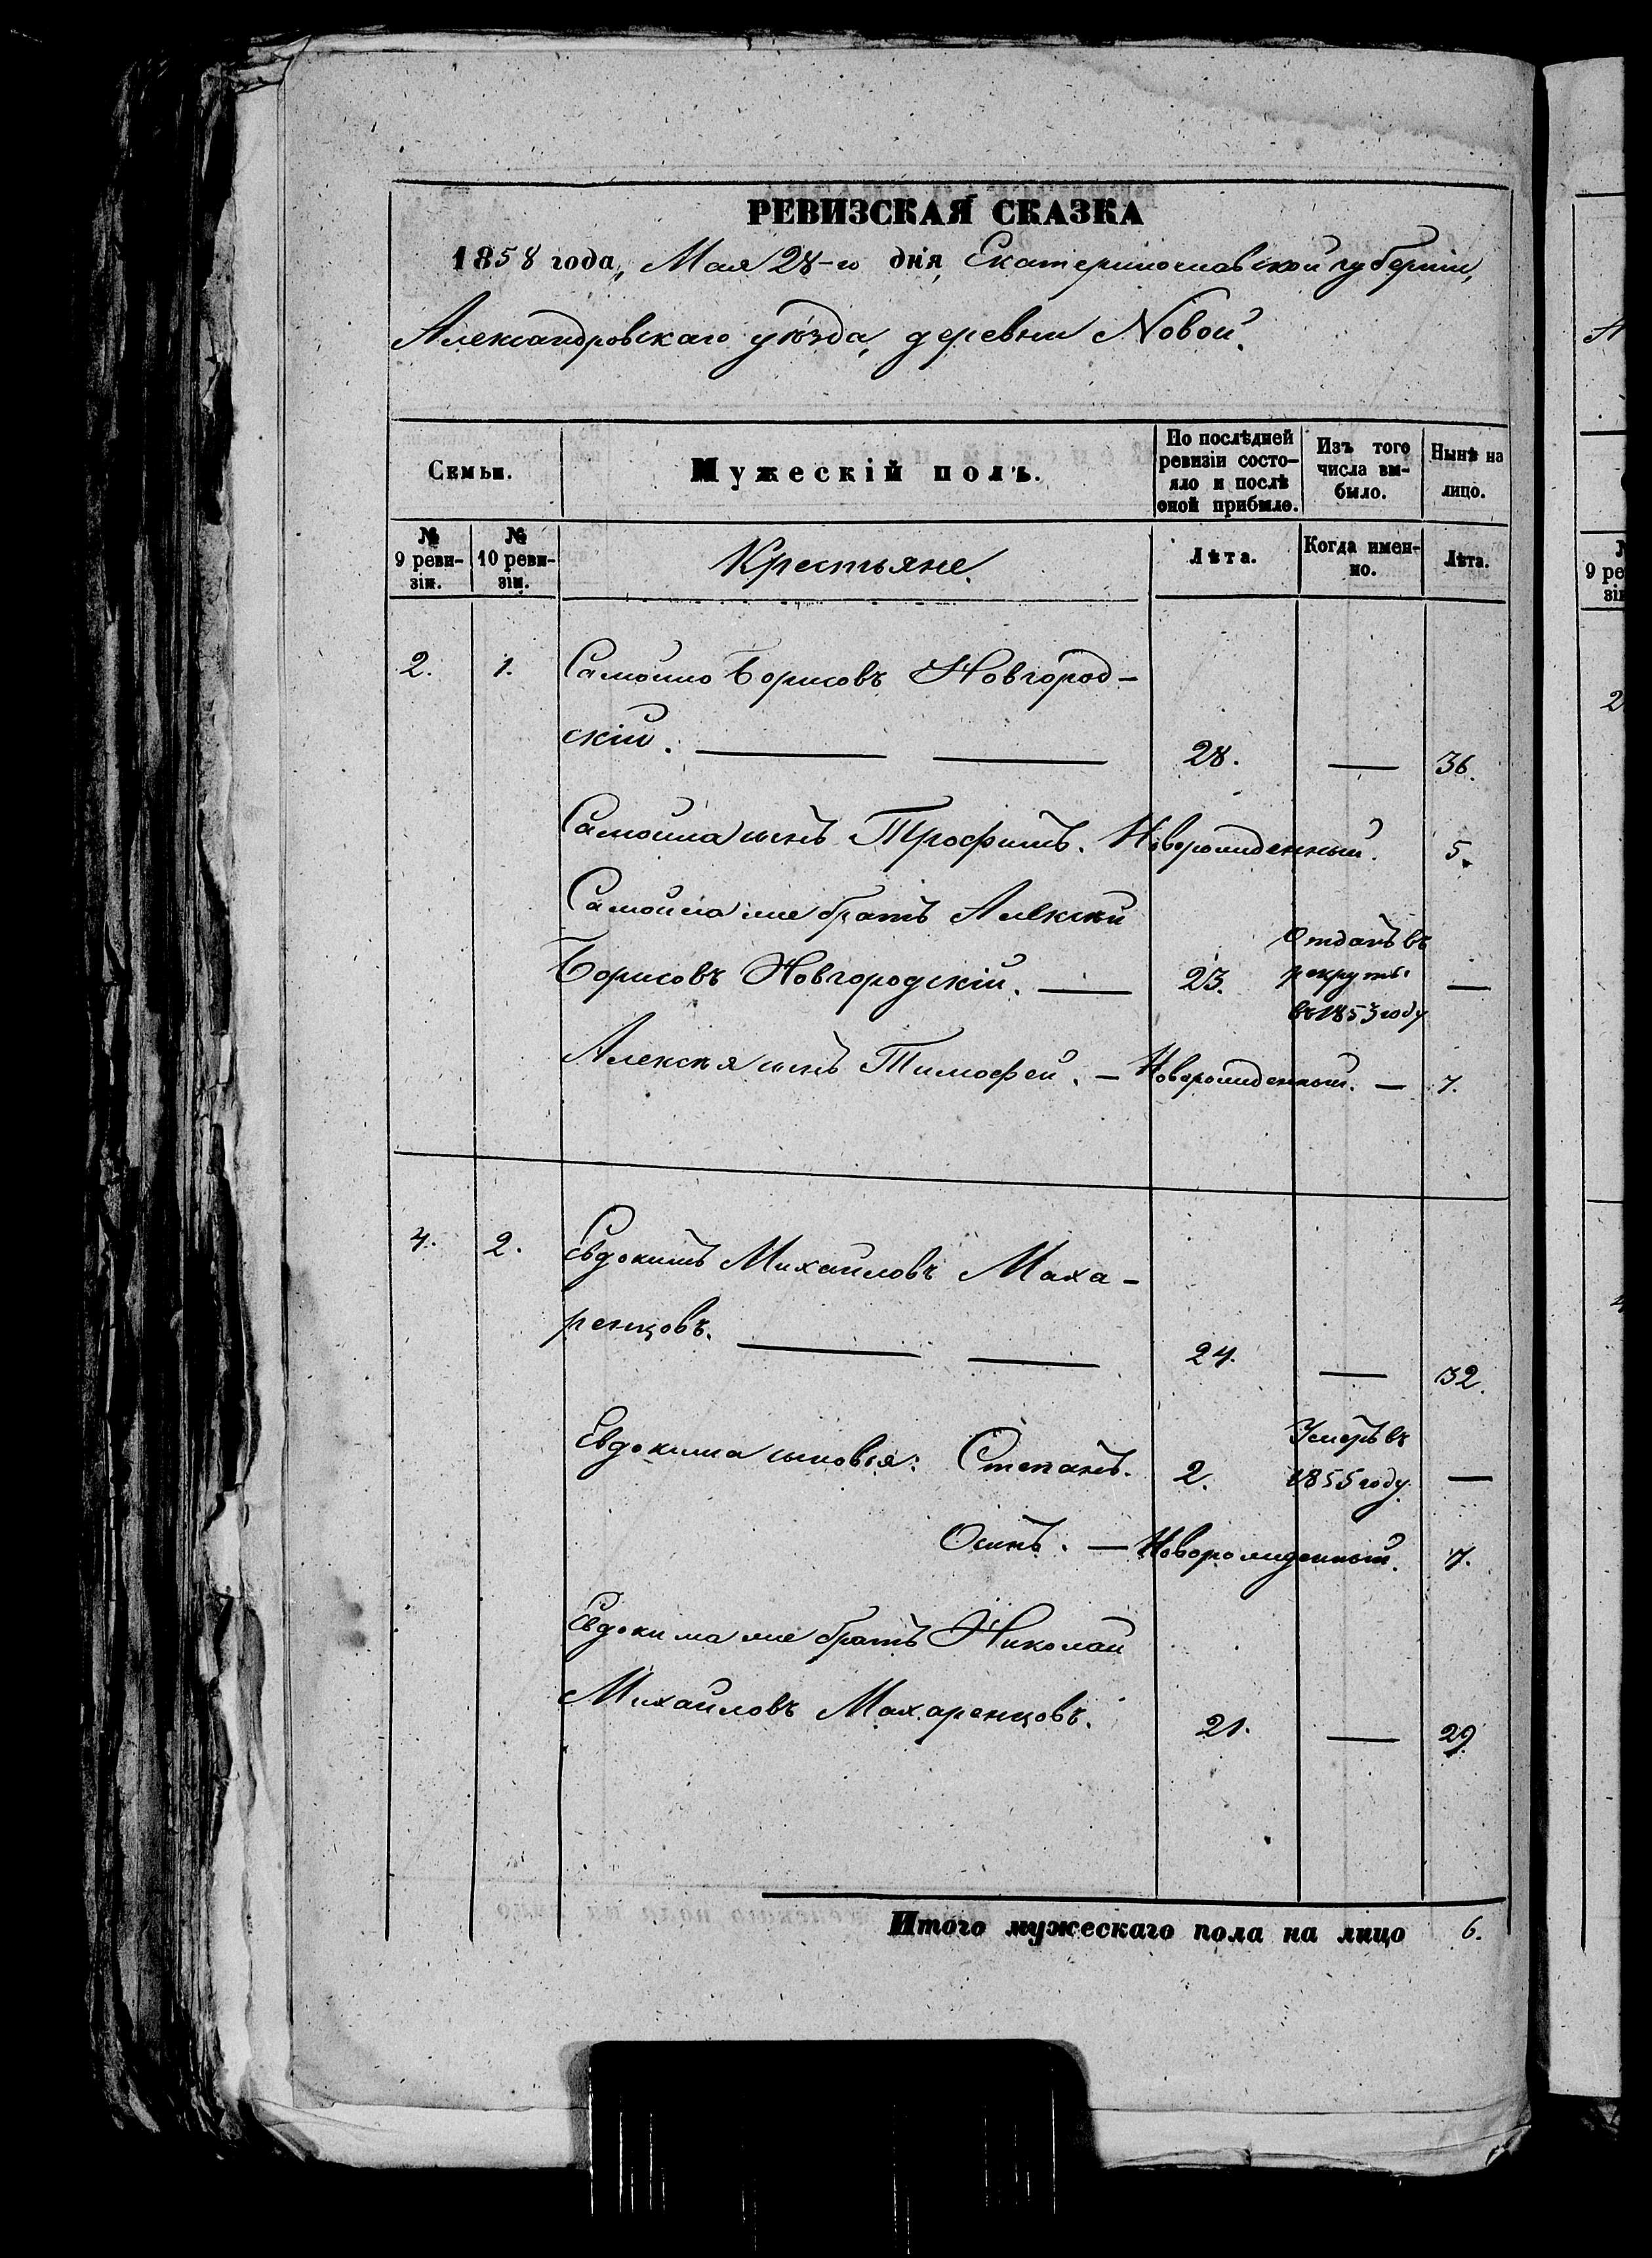 РЕВИЗСКАЯ СКАЗКА
1858 года, Мая 28-го дня, Екатеринославской губерніи,
Александровскаго уѣзда, деревни Новой.
Семьи.
Мужескій полъ.
По послѣдней ревизіи состояло и послѣ оной прибыло.
Изъ того числа выбыло.
Нынѣ на лицо.
№ 9 ревизіи.
№ 10 ревизіи.
Крестьяне.
Лѣта.
Когда именно.
Лѣта.
2. 1. Самойло Борисовъ Новгород-
скій. 28. — 36.
Самойла сынъ Трофимъ. Новорожденный. 5.
Самойла же братъ Алексѣй
Борисовъ Новгородскій. — 23. Отданъ въ рекруты въ 1853 году —
Алексѣя сынъ Тимофей. — Новорожденный. — 7.
4. 2. Евдокимъ Михайловъ Маха-
ренцовъ. 24. — 32.
Евдокима сыновья: Степанъ. 2. Умеръ въ 1855 году. —
Осипъ. — Новорожденный. 7.
Евдокима же братъ Николай
Михайловъ Махаренцовъ. 21. — 29.
Итого мужескаго пола на лицо 6.